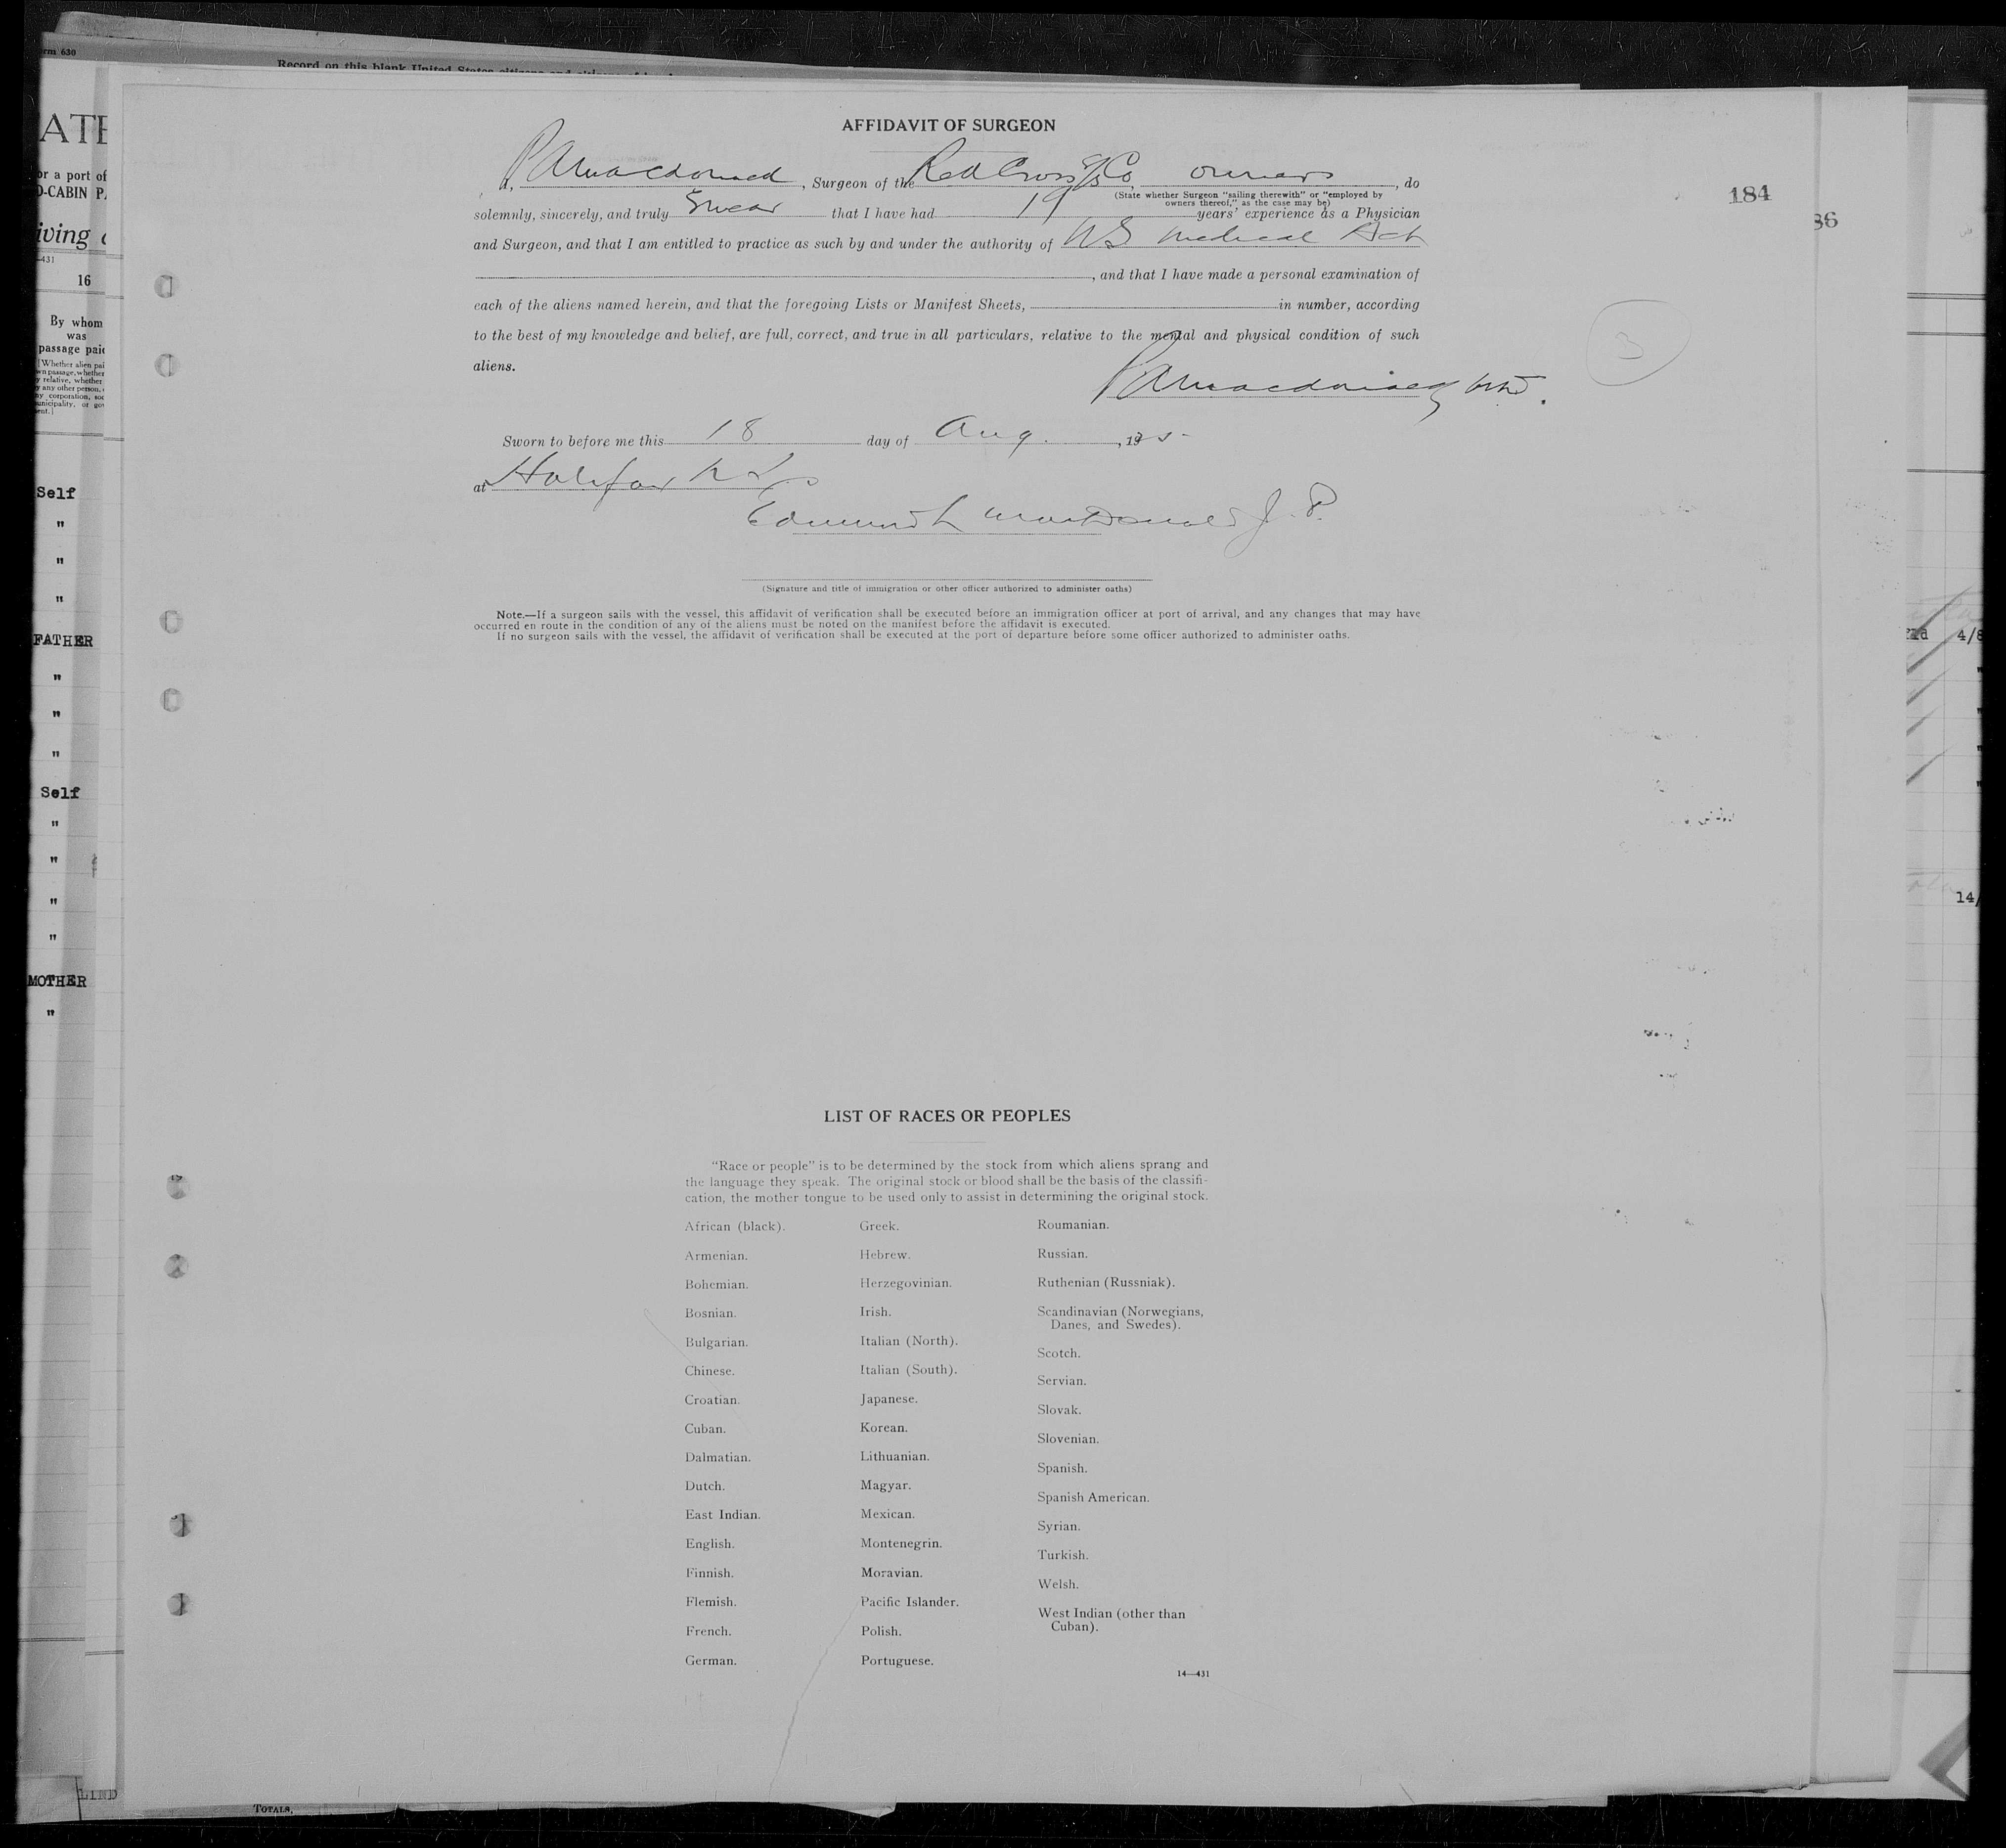 rm 630
Record on this blank United States citizens and
ATE
or a port of
D-CABIN PA
iving a
—431
16
By whom
was
passage paid
[Whether alien pai
wn passage, whether
y relative, whether
y any other person,
ny corporation, soc
unicipality, or gov
ent.]
Self
"
"
"
FATHER
"
"
"
Self
"
"
"
"
MOTHER
"
LIND
TOTALS,
184
86
3
AFFIDAVIT OF SURGEON
I, P A Macdonald, Surgeon of the Red Cross SS Co, owners, do
(State whether Surgeon "sailing therewith" or "employed by
owners thereof," as the case may be)
solemnly, sincerely, and truly Swear that I have had 19 years' experience as a Physician
and Surgeon, and that I am entitled to practice as such by and under the authority of NS Medical Act
, and that I have made a personal examination of
each of the aliens named herein, and that the foregoing Lists or Manifest Sheets, in number, according
to the best of my knowledge and belief, are full, correct, and true in all particulars, relative to the mental and physical condition of such
aliens.
P A Macdonald MD.
Sworn to before me this 18 day of Aug., 1925
at Halifax N S
Edmund L MacDonald J. P.
(Signature and title of immigration or other officer authorized to administer oaths)
Note.—If a surgeon sails with the vessel, this affidavit of verification shall be executed before an immigration officer at port of arrival, and any changes that may have
occurred en route in the condition of any of the aliens must be noted on the manifest before the affidavit is executed.
If no surgeon sails with the vessel, the affidavit of verification shall be executed at the port of departure before some officer authorized to administer oaths.
4/8
"
"
"
"
14/
LIST OF RACES OR PEOPLES
"Race or people" is to be determined by the stock from which aliens sprang and
the language they speak. The original stock or blood shall be the basis of the classifi-
cation, the mother tongue to be used only to assist in determining the original stock.
African (black).
Armenian.
Bohemian.
Bosnian.
Bulgarian.
Chinese.
Croatian.
Cuban.
Dalmatian.
Dutch.
East Indian.
English.
Finnish.
Flemish.
French.
German.
Greek.
Hebrew.
Herzegovinian.
Irish.
Italian (North).
Italian (South).
Japanese.
Korean.
Lithuanian.
Magyar.
Mexican.
Montenegrin.
Moravian.
Pacific Islander.
Polish.
Portuguese.
Roumanian.
Russian.
Ruthenian (Russniak).
Scandinavian (Norwegians,
Danes, and Swedes).
Scotch.
Servian.
Slovak.
Slovenian.
Spanish.
Spanish American.
Syrian.
Turkish.
Welsh.
West Indian (other than
Cuban).
14—431